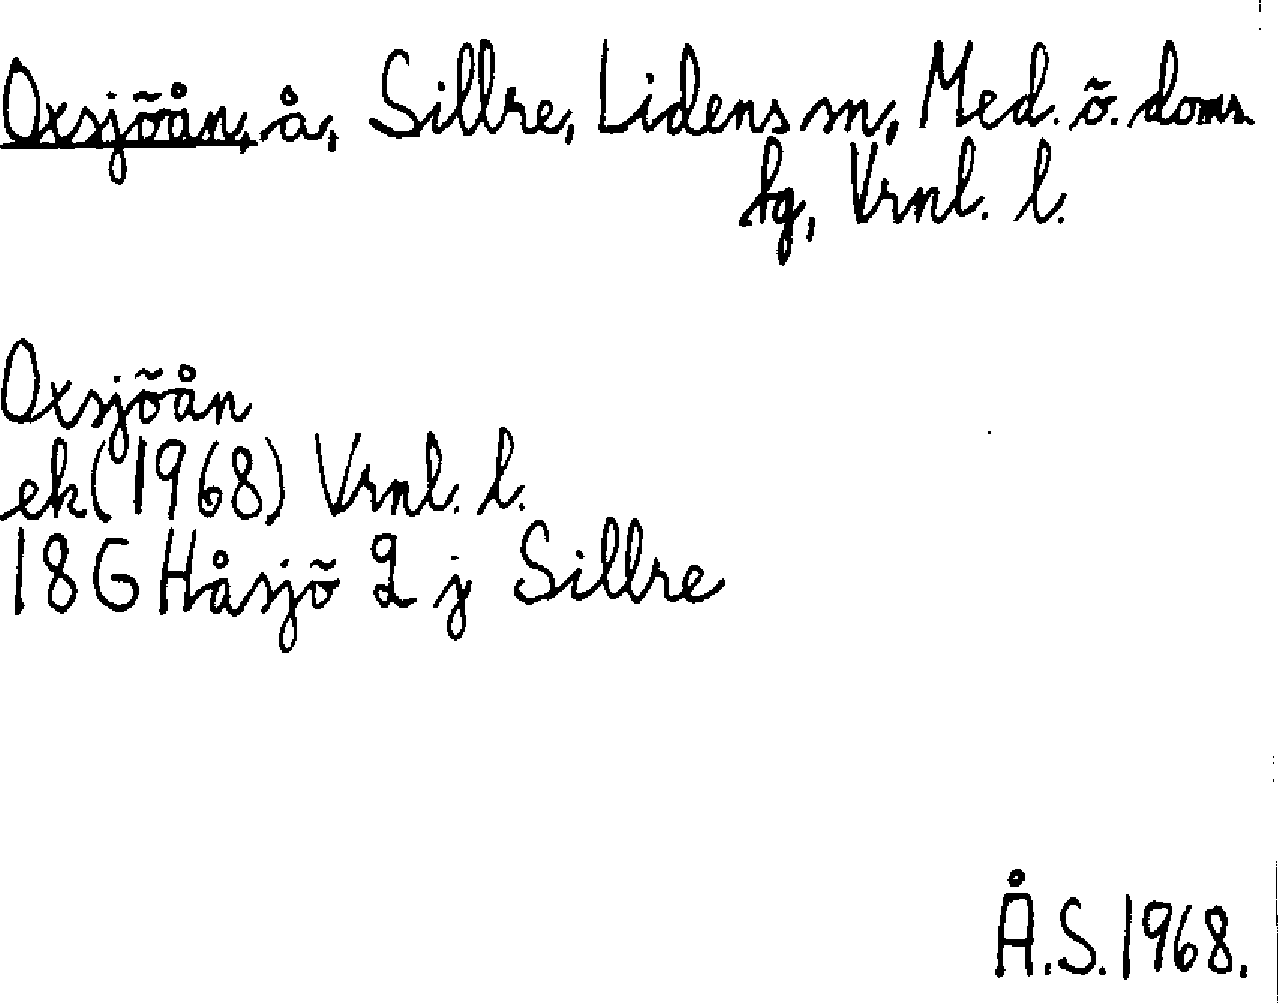 Oxsjöån, å, Sillre, Lidens sn, Med. ö. doms.
fg, Vrnl. l.
Oxsjöån
ek (1968) Vrnl. l.
18G Håsjö 2 j Sillre
Å.S. 1968.